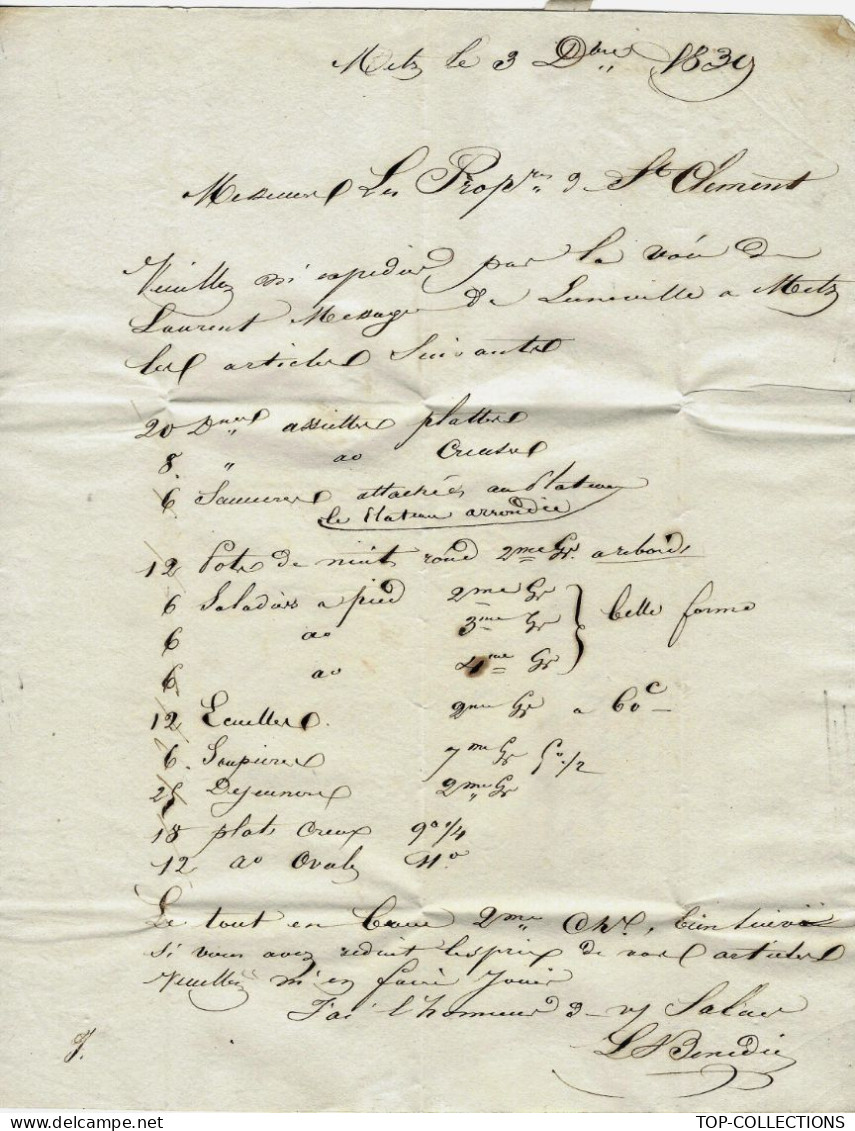 Metz le 3 Dbre 1839
Messieurs Les Propres de St Clement
Veuillez m'expedier par la voie de
Laurent Messager de Luneville a Metz
les articles Suivants
20 Dnes assiettes plattes
8 " do Creuses
6 Saucieres attachées au Plateau
le Plateau arrondie
12 Pots de nuit rond 2me Gr. a rebords
6 Saladiers a pied 2me Gr
6 do 3me Gr belle forme
6 do 4me Gr
12 Ecuelles 2me Gr a 60c
6 Soupieres 7me Gr
25 Dejeuners 2me Gr
18 plats Creux 9o 1/4
12 do Ovals 11o
Le tout en beau 2me Chx,
si vous avez reduit les prix de vos articles
Veuillez m'en faire jouir
J'ai l'honneur d v Saluer
L Benedic
J.
TOP-COLLECTIONS